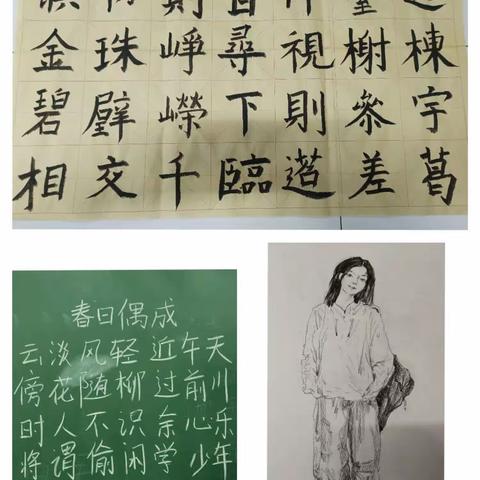 棟宇葛
臺榭參差
視則
百尋下臨
則崢嶸千
珠壁交
金碧相
春日偶成
云淡风轻近午天
傍花随柳过前川
时人不识余心乐
将谓偷闲学少年